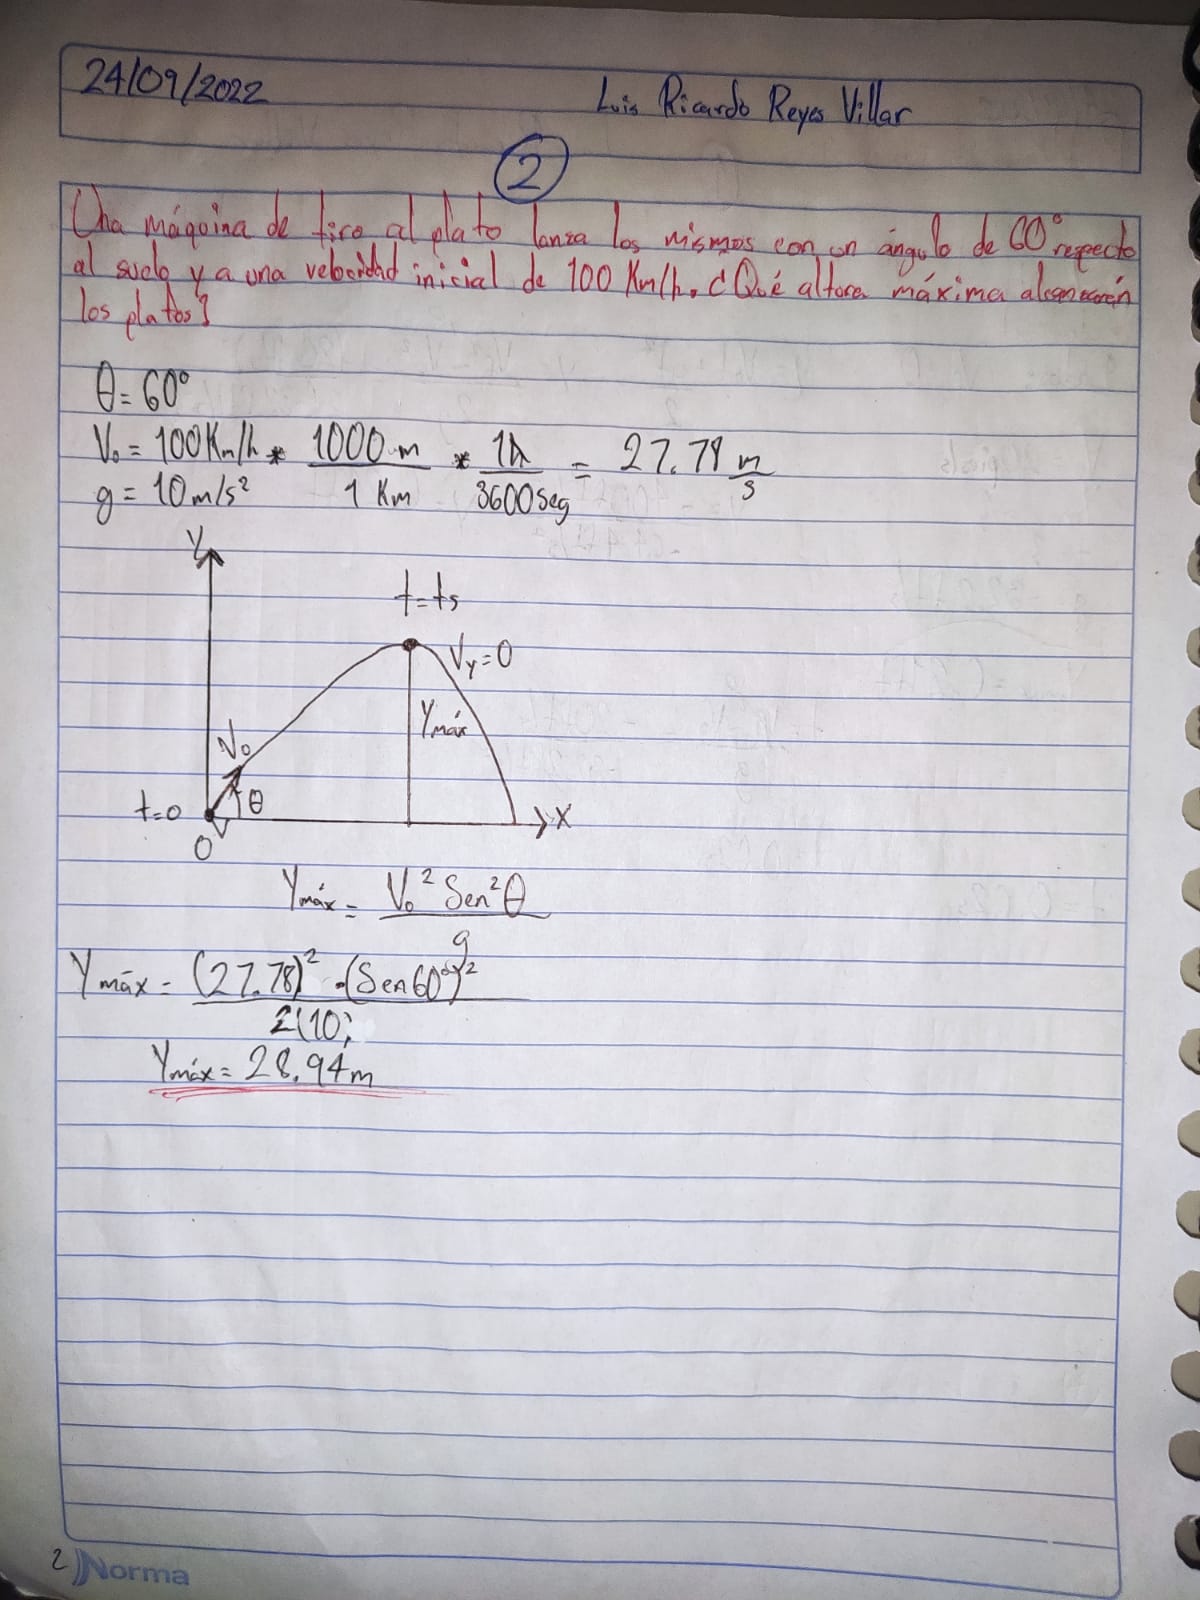 24/09/2022
Luis Ricardo Reyes Villar
2
Una máquina de tiro al plato lanza los mismos con un ángulo de 60° respecto
al suelo y a una velocidad inicial de 100 Km/h. ¿Qué altura máxima alcanzarán
los platos?
θ = 60°
V₀ = 100 Km/h * 1000 m / 1 Km * 1h / 3600 seg = 27.78 m/s
g = 10 m/s²
Y
t=ts
Vy=0
Ymáx
V₀
t=0
θ
X
0
Ymáx = V₀² Sen²θ / g
Ymáx = (27.78)² · (Sen60°)² / 2(10)
Ymáx = 28.94m
2 Norma